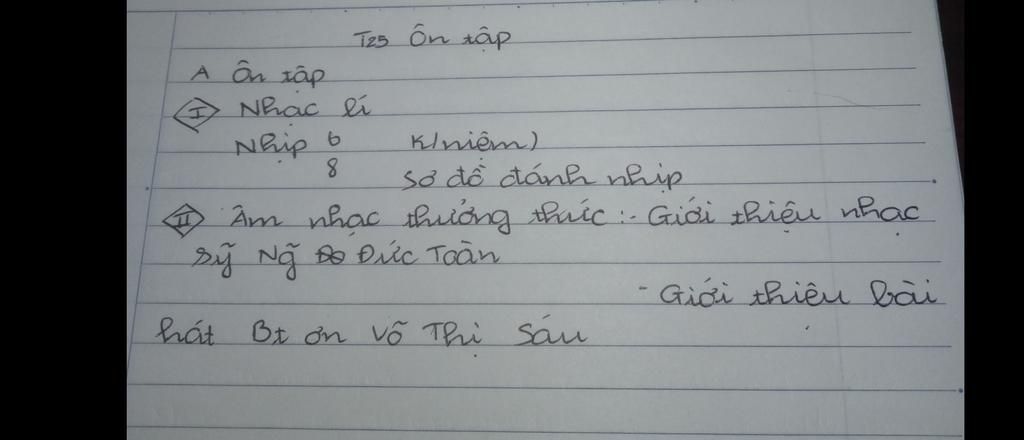 T25 Ôn tập
A Ôn tập
I Nhạc lí
Nhịp 6 K/niệm)
8 Sơ đồ đánh nhịp
II Âm nhạc thưởng thức :- Giới thiệu nhạc
sỹ Ng̃ Đức Toàn
- Giới thiệu bài
hát Bt ơn Võ Thị Sáu